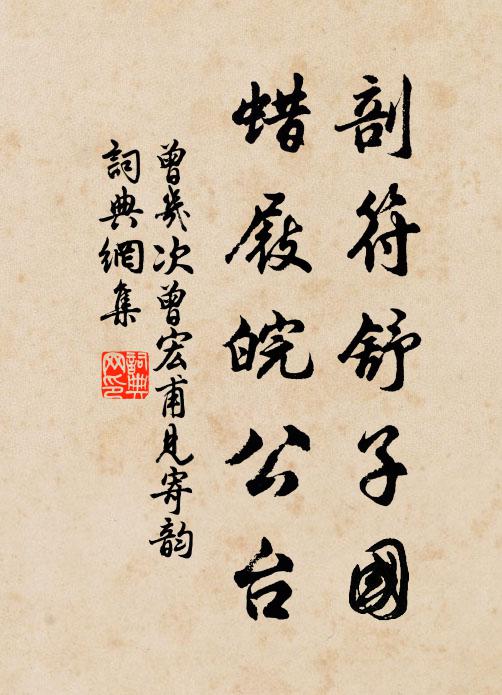 剖符舒子國
蜡屐皖公台
曾幾次曾宏甫見寄韵
詞典網集
詞典网印